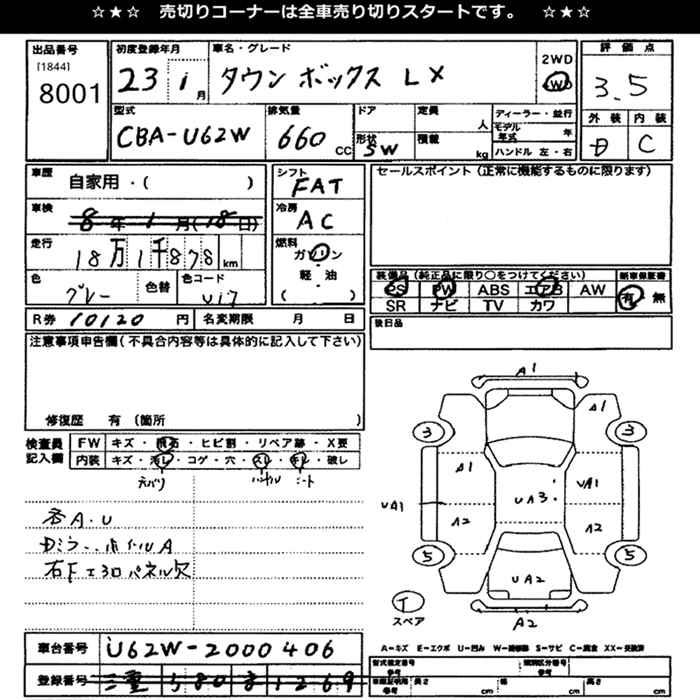 ☆★☆ 売切りコーナーは全車売り切りスタートです。 ☆★☆
出品番号
[1844]
8001
初度登録年月
23 1 月
車名・グレード
タウンボックス LX
2WD
4WD
評価点
3.5
型式
CBA-U62W
排気量
660 cc
ドア
形状
SW
定員
人
積載
kg
ディーラー・並行
モデル
年式 年
ハンドル 左・右
外装 内装
D C
車歴
自家用・( )
シフト
FAT
セールスポイント(正常に機能するものに限ります)
車検
8年1月(18日)
冷房
AC
走行
18万1千878 km
燃料
ガソリン
軽・油
( )
色
グレー
色替
色コード
U17
装備品(純正品に限り○をつけてください)
新車保証書
PS PW ABS エアB AW
有・無
SR ナビ TV カワ
R券 10120 円
名変期限 月 日
後日品
注意事項申告欄(不具合内容等は具体的に記入して下さい)
修復歴 有(箇所 )
検査員
記入欄
FW キズ・飛石・ヒビ割・リペア跡・X要
内装 キズ・汚レ・コゲ・穴・スレ・キレ・破レ
天バリ ハンドル シート
各A.U
Dミラー.ホイルA
右Fエプロパネル欠
A1
A1
3 3
A1 UA3 UA1
UA1
A2 A2
5 5
UA2
T
スペア
A2
A=キズ E=エクボ U=凹み W=補修跡 S=サビ C=腐食 XX=交換済
車台番号
U62W-2000406
登録番号
三重 580 き 1269
型式指定番号
参考
類別区分番号
参考
参考
長さ cm
幅 cm
高さ cm